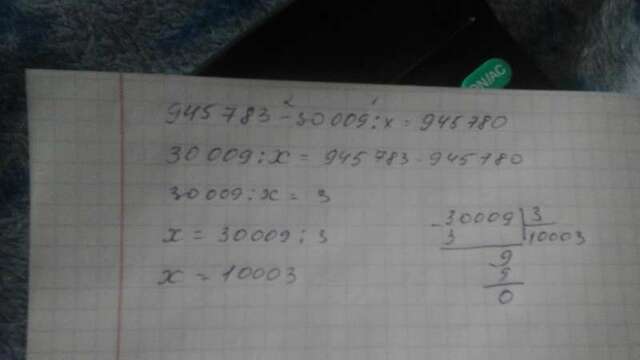 945 783 - 30 009 : x = 945 780
2 1
30 009 : x = 945 783 - 945 780
30009 : x = 3
x = 30009 : 3
x = 10003
30009 | 3
- 3 | 10003
9
9
0